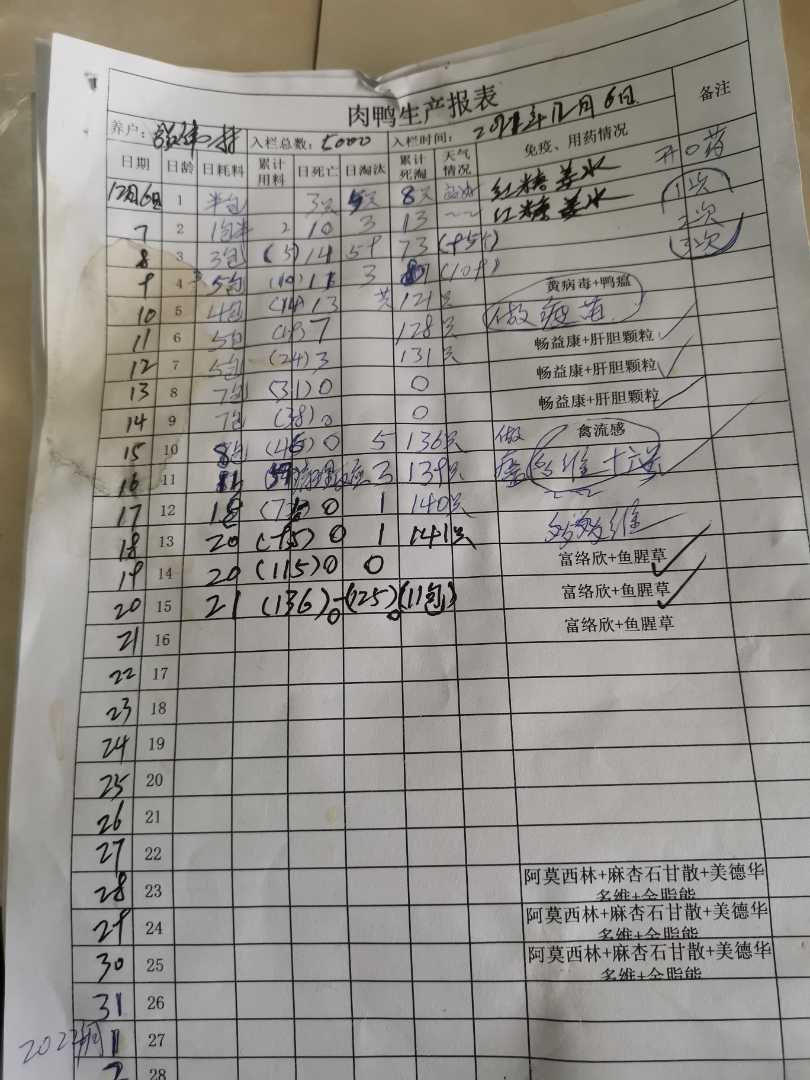 肉鸭生产报表
养户: 入栏总数: 5000 入栏时间: 2021年12月6日 备注
日期 日龄 日耗料 累计用料 日死亡 日淘汰 累计死淘 天气情况 免疫、用药情况 开口药
12月6日 1 半包 3只 5只 8只 红糖姜水 1次
7 2 1包半 2 10 3 13 红糖姜水 2次
8 3 3包 (5) 14 73 3次
9 4 5包 (10) 11 3
10 5 4包 (14) 13 121只 黄病毒+鸭瘟
做疫苗
11 6 5包 (19) 7 128只 畅益康+肝胆颗粒
12 7 5包 (24) 3 131只 畅益康+肝胆颗粒
13 8 7包 (31) 0 0 畅益康+肝胆颗粒
14 9 7包 (38) 0 0
15 10 8包 (46) 0 5 136只 做 禽流感
16 11 3 139只
17 12 18 0 1 140只
18 13 20 (95) 0 1 141只
19 14 20 (115) 0 0 富络欣+鱼腥草
20 15 21 (136) 0 -(125) 0 (11包) 富络欣+鱼腥草
21 16 富络欣+鱼腥草
22 17
23 18
24 19
25 20
26 21
27 22
28 23 阿莫西林+麻杏石甘散+美德华
多维+全脂能
29 24 阿莫西林+麻杏石甘散+美德华
多维+全脂能
30 25 阿莫西林+麻杏石甘散+美德华
多维+全脂能
31 26
2022年 1 27
2 28